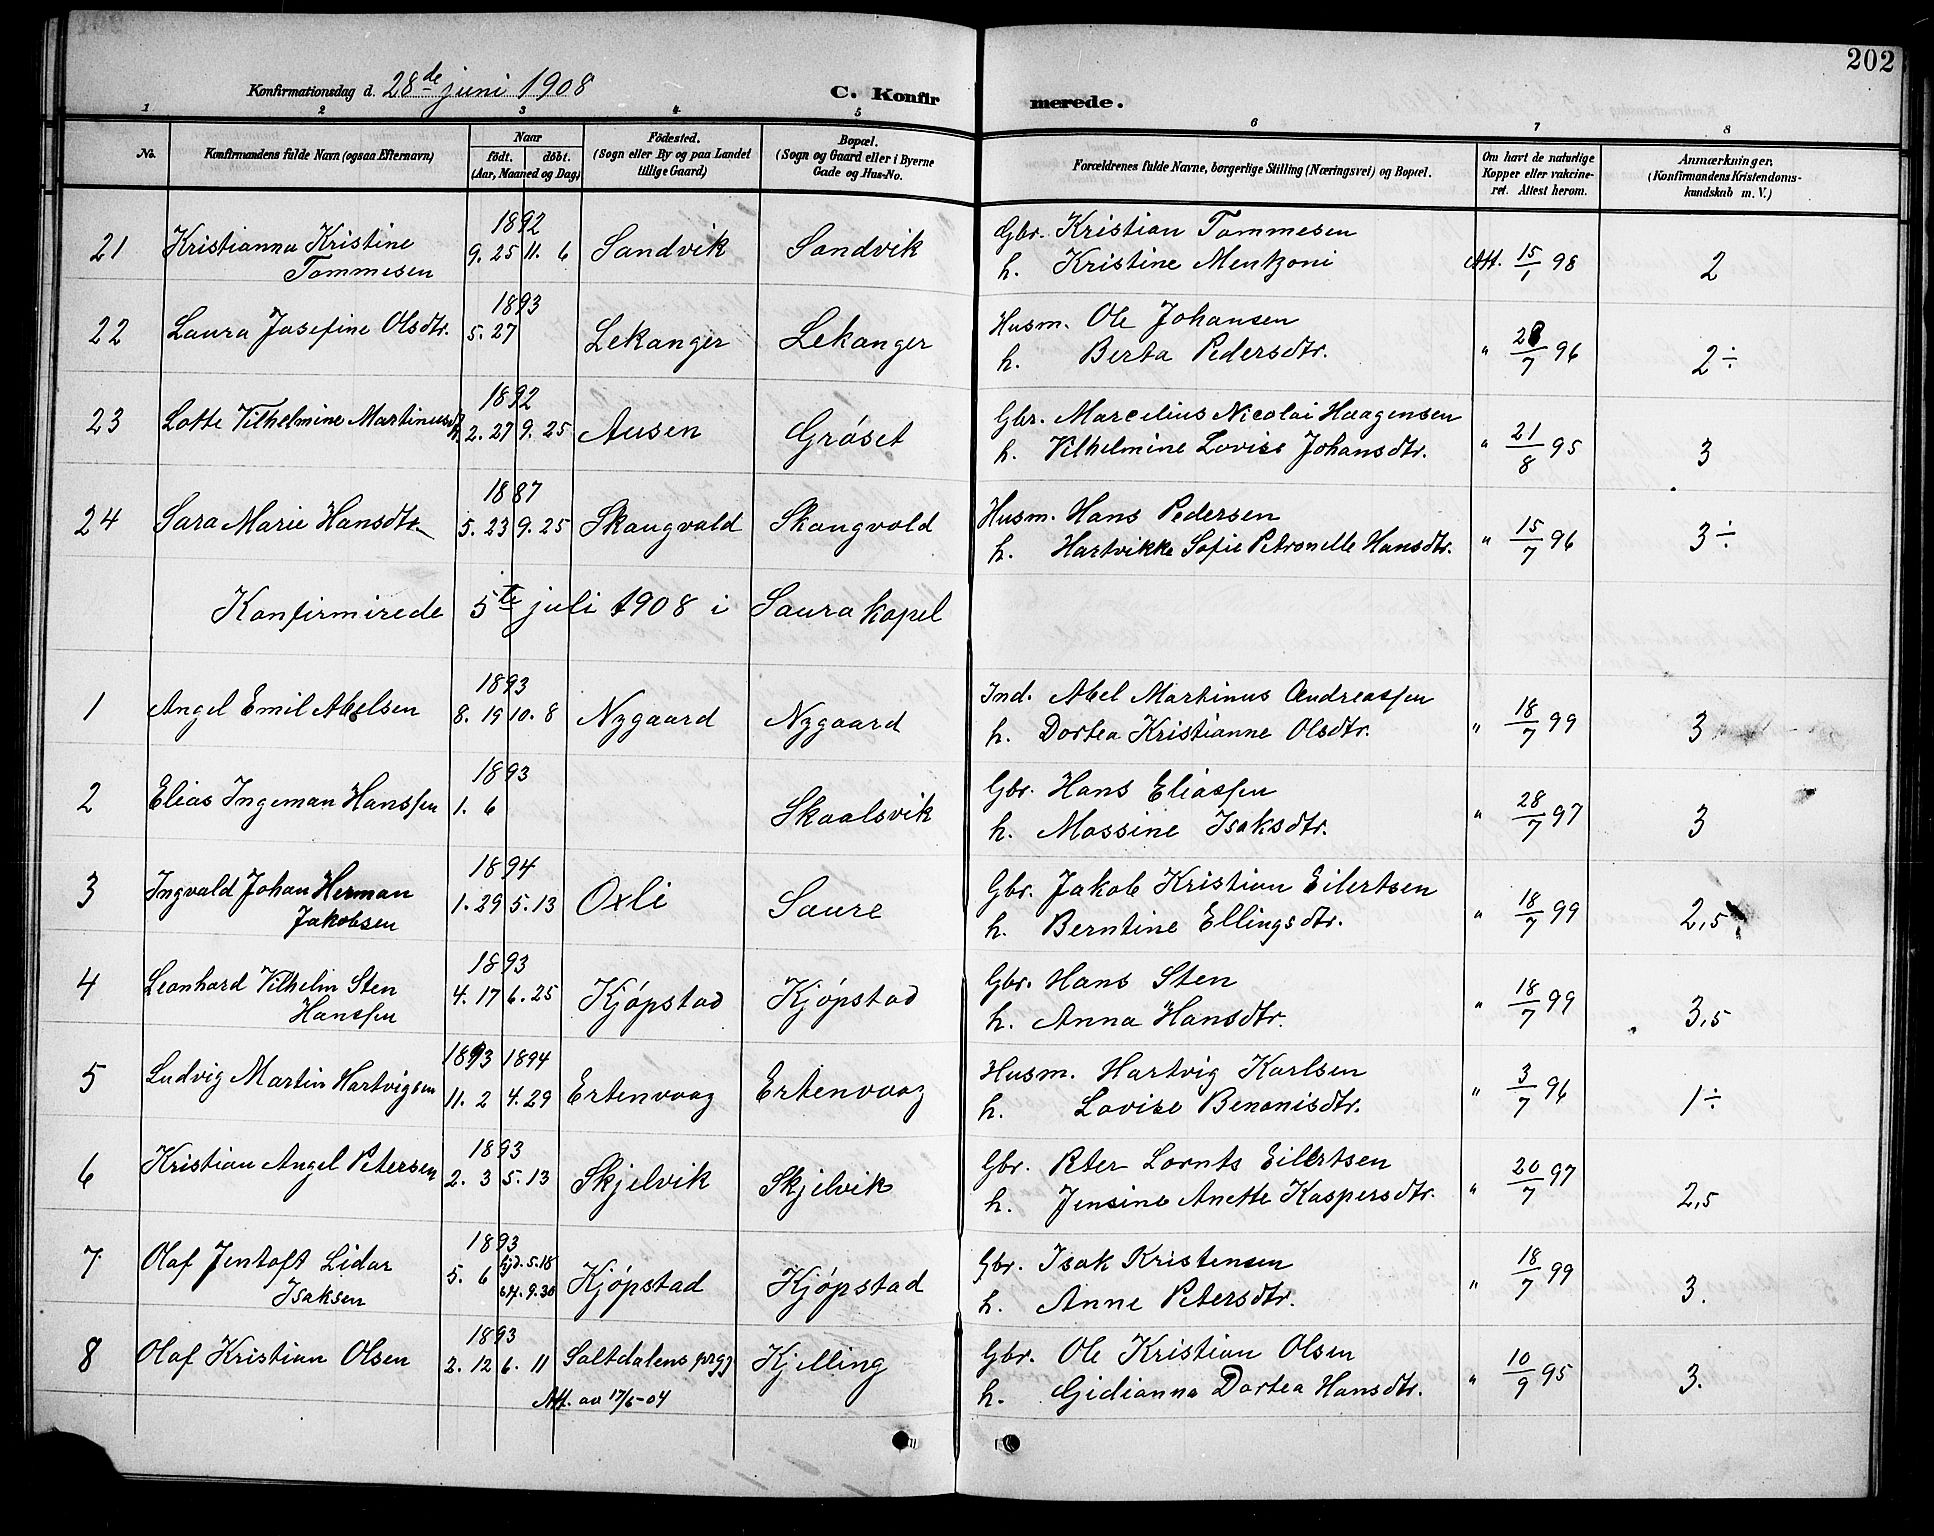 202
Konfirmationsdag d. 28de juni 1908 C. Konfirmerede.
1 2 3 4 5 6 7 8
No. Konfirmandens fulde Navn (ogsaa Efternavn) Naar født. døbt. (Aar, Maaned og Dag) Fødested. (Sogn eller By og paa Landet tillige Gaard) Bopæl. (Sogn og Gaard eller i Byerne Gade og Hus-No. Forældrenes fulde Navne, borgerlige Stilling (Næringsvei) og Bopæl. Om havt de naturlige Kopper eller vakcineret. Attest herom. Anmærkninger. (Konfirmandens Kristendomskundskab m. V.)
1892
21 Kristianna Kristine Tommesen 9. 25 11. 6 Sandvik Sandvik Gbr. Kristian Tommesen
h. Kristine Mentzoni Att. 15/1 98 2
1893
22 Laura Josefine Olsdtr. 5. 27 Lekanger Lekanger Husm. Ole Johansen
h. Berta Pedersdtr. " 28/7 96 2÷
1892
23 Lotte Vilhelmine Martinusdtr. 2. 27 9. 25 Ausen Grøset Gbr. Marcelius Nicolai Haagensen
h. Vilhelmine Lovise Johansdtr. " 21/8 95 3
1887
24 Sara Marie Hansdtr. 5. 23 9. 25 Skaugvold Skaugvold Husm. Hans Pedersen
h. Hartvikke Sofie Petronelle Hansdtr. " 15/7 96 3÷
Konfirmirede 5te juli 1908 i Saura kapel
1893
1 Angel Emil Abelsen 8. 19 10. 8 Nygaard Nygaard Ind. Abel Martinus Andreassen
h. Dortea Kristianne Olsdtr. " 18/7 99 3
1893
2 Elias Ingeman Hanssen 1. 6 Skaalsvik Gbr. Hans Eliassen
h. Massine Isaksdtr. " 28/7 97 3
1894
3 Ingvald Johan Herman Jakobsen 1. 29 5. 13 Oxli Saure Gbr. Jakob Kristian Eilertsen
h. Berntine Ellingsdtr. " 18/7 99 2,5
1893
4 Leonhard Vilhelm Sten Hanssen 4. 17 6. 25 Kjøpstad Kjøpstad Gbr. Hans Sten
h. Anna Hansdtr. " 18/7 99 3,5
1893 1894
5 Ludvig Martin Hartvigsen 11. 2 4. 29 Ertenvaag Ertenvaag Husm. Hartvig Karlsen
h. Lovise Benonisdtr. " 3/7 96 1÷
1893
6 Kristian Angel Petersen 2. 3 5. 13 Skjelvik Skjelvik Gbr. Peter Lornts Eilertsen
h. Jensine Anette Kaspersdtr. " 20/7 97 2,5
1893
7 Olaf Jentoft Lidar Isaksen 5. 6 hjd. 5. 18 st. 9. 30 Kjøpstad Kjøpstad Gbr. Isak Kristensen
h. Anne Petersdtr. " 18/7 99 3.
1893
8 Olaf Kristian Olsen 2. 12 6. 11 Saltdalens prgj Kjelling Gbr. Ole Kristian Olsen
h. Gidianna Dortea Hansdtr. " 10/9 95 3.
Att. av 17/6-04